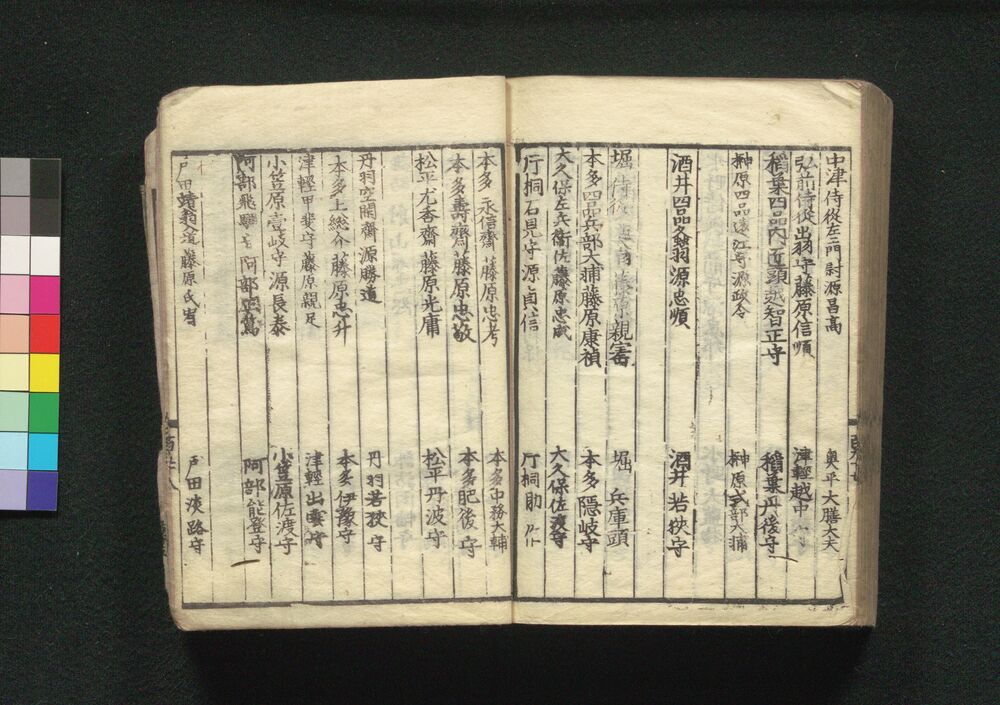 中津侍從左衛門尉源昌高 奥平大膳大夫
弘前侍從出羽守藤原信順 津輕越中
稲葉四品内匠頭越智正守 稲葉丹後守
榊原四品遠江守源政令 榊原式部大輔
酒井四品冬翁源忠順 酒井若狹守
堀侍從 藤原親審 堀兵庫頭
本多四品兵部大輔藤原康禎 本多隠岐守
大久保左兵衛佐藤原忠成 大久保佐渡守
片桐石見守源貞信 片桐助
本多永信齋藤原忠考 本多中務大輔
本多壽齋藤原忠敬 本多肥後守
松平尤香齋藤原光庸 松平丹波守
丹羽空閑齋源勝道 丹羽若狹守
本多上総介藤原忠升 本多伊豫守
津輕甲斐守藤原親足 津輕出雲守
小笠原壹岐守源長泰 小笠原佐渡守
阿部飛騨守阿部正篤 阿部能登守
戸田靖翁入道藤原氏 戸田淡路守